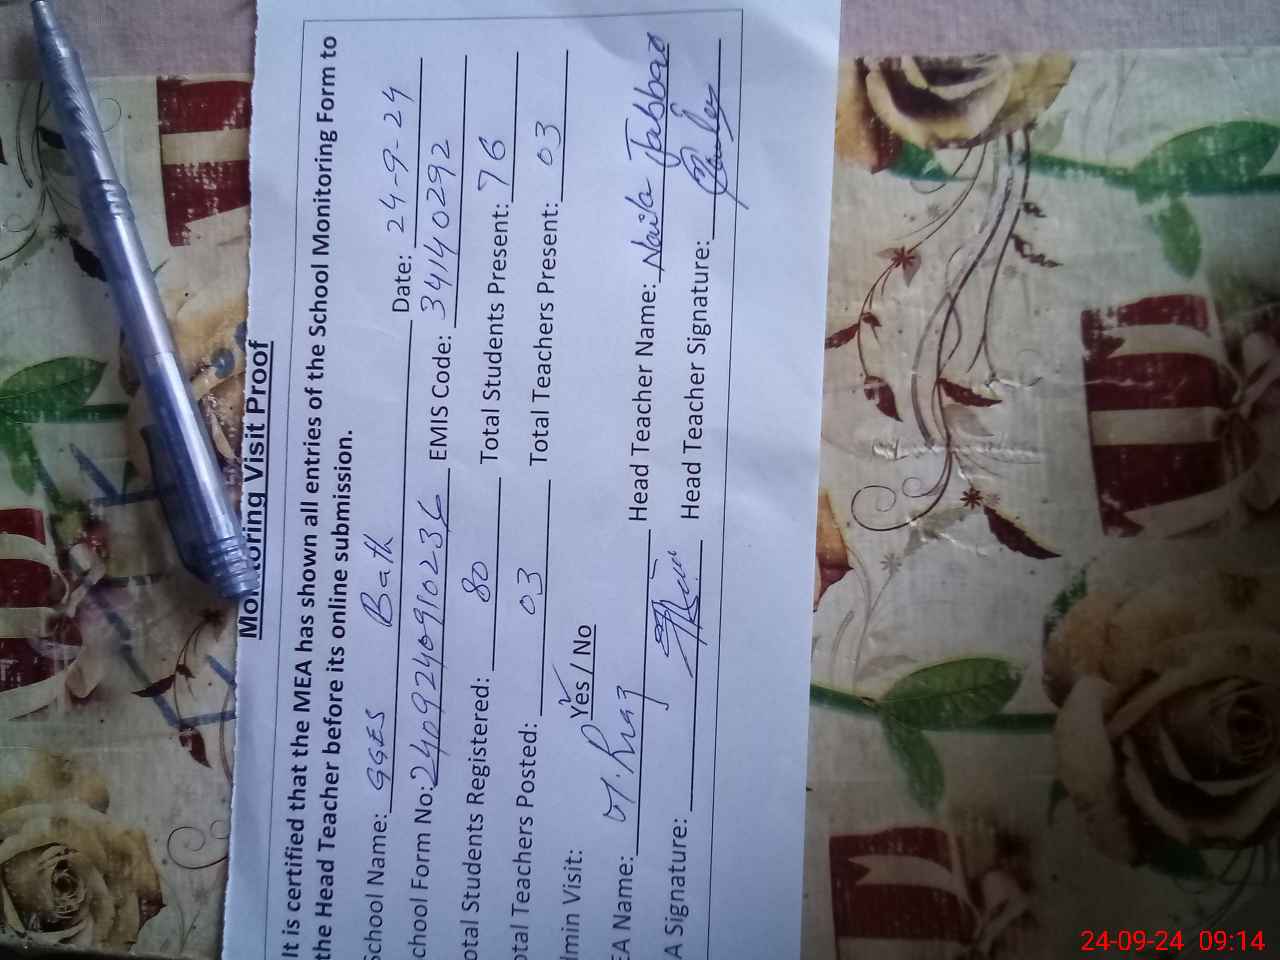 Monitoring Visit Proof
It is certified that the MEA has shown all entries of the School Monitoring Form to
the Head Teacher before its online submission.
School Name: GGES Bath Date: 24-9-24
chool Form No: 2409240910236 EMIS Code: 34140292
otal Students Registered: 80 Total Students Present: 76
otal Teachers Posted: 03 Total Teachers Present: 03
dmin Visit: Yes / No
EA Name: M. Riaz Head Teacher Name: Naila Jabbar
A Signature: Head Teacher Signature:
24-09-24 09:14